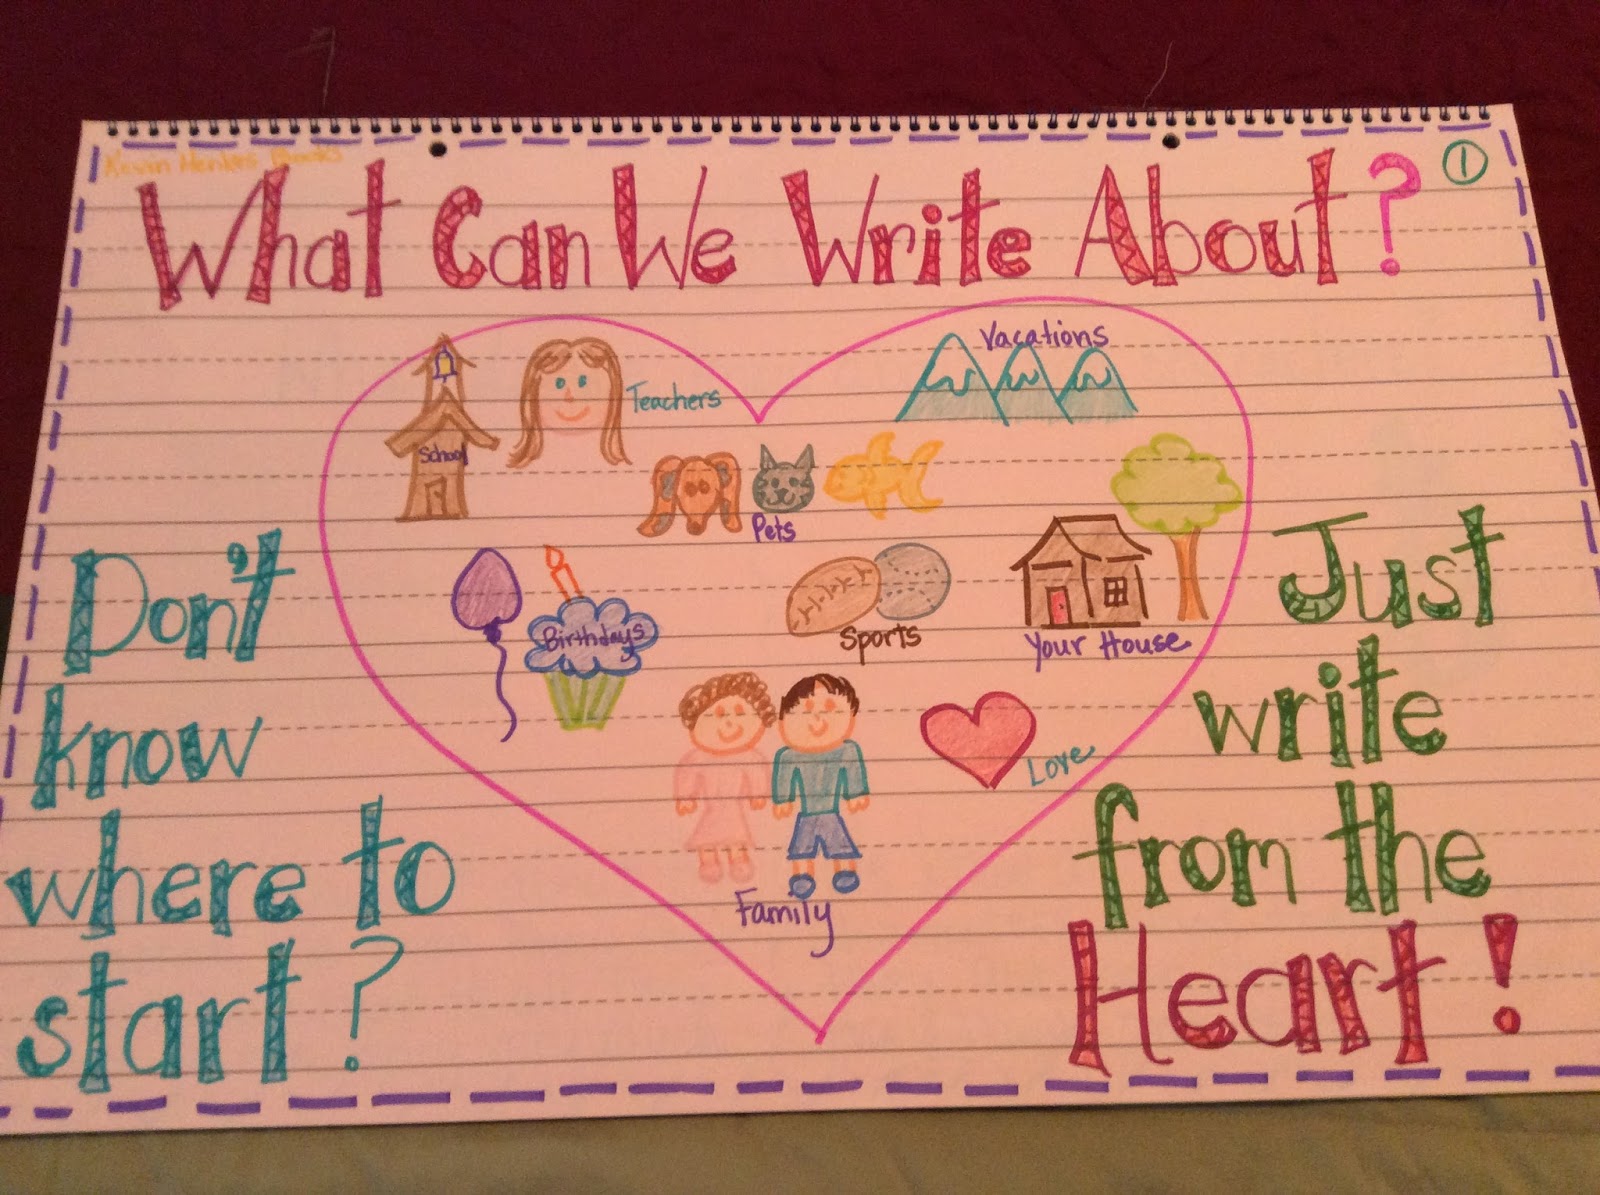 Kevin Henkes Books
1
What Can We Write About?
Vacations
Teachers
School
Pets
Birthdays
Sports
Your House
Love
Family
Don't
know
where to
start?
Just
write
from the
Heart!